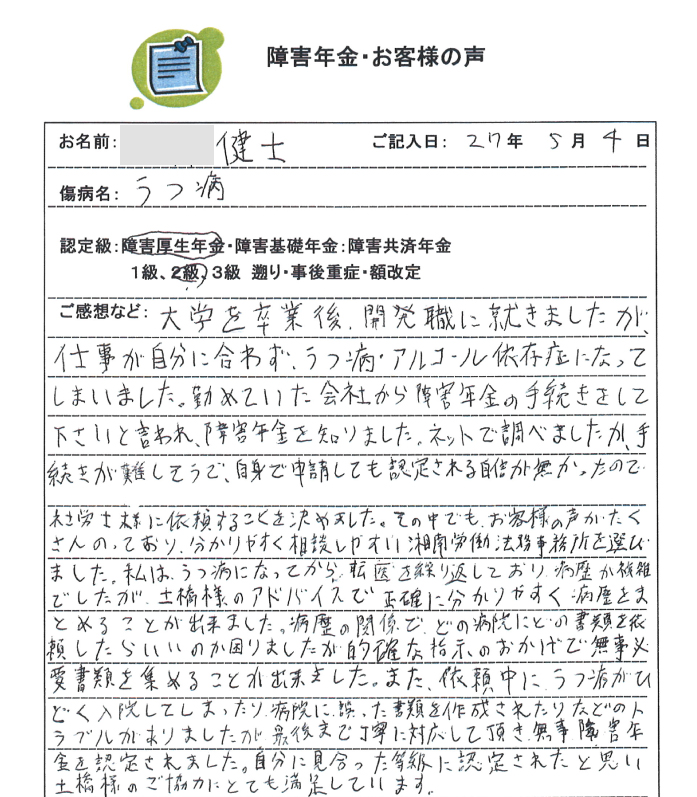 障害年金・お客様の声
お名前: 健士 ご記入日: 27年 5月 4日
傷病名: うつ病
認定級:障害厚生年金・障害基礎年金:障害共済年金
1級、2級、3級 遡り・事後重症・額改定
ご感想など: 大学を卒業後、開発職に就きましたが、
仕事が自分に合わず、うつ病・アルコール依存症になって
しまいました。勤めていた会社から障害年金の手続きをして
下さいと言われ、障害年金を知りました。ネットで調べましたが、手
続きが難しそうで、自身で申請しても認定される自信が無かったので
社労士様に依頼することを決めました。その中でも、お客様の声がたく
さんのっており、分かりやすく相談しやすい湘南労働法務事務所を選び
ました。私は、うつ病になってから、転医を繰り返しており、病歴が複雑
でしたが、土橋様のアドバイスで正確に分かりやすく病歴をま
とめることが出来ました。病歴の関係で、どの病院にどの書類を依
頼したらいいのか困りましたが的確な指示のおかげで無事必
要書類を集めることが出来ました。また、依頼中に、うつ病がひ
どく入院してしまったり、病院に誤った書類を作成されたりなどのト
ラブルがありましたが最後まで丁寧に対応して頂き、無事障害年
金を認定されました。自分に見合った等級に認定されたと思い
土橋様のご協力にとても満足しています。